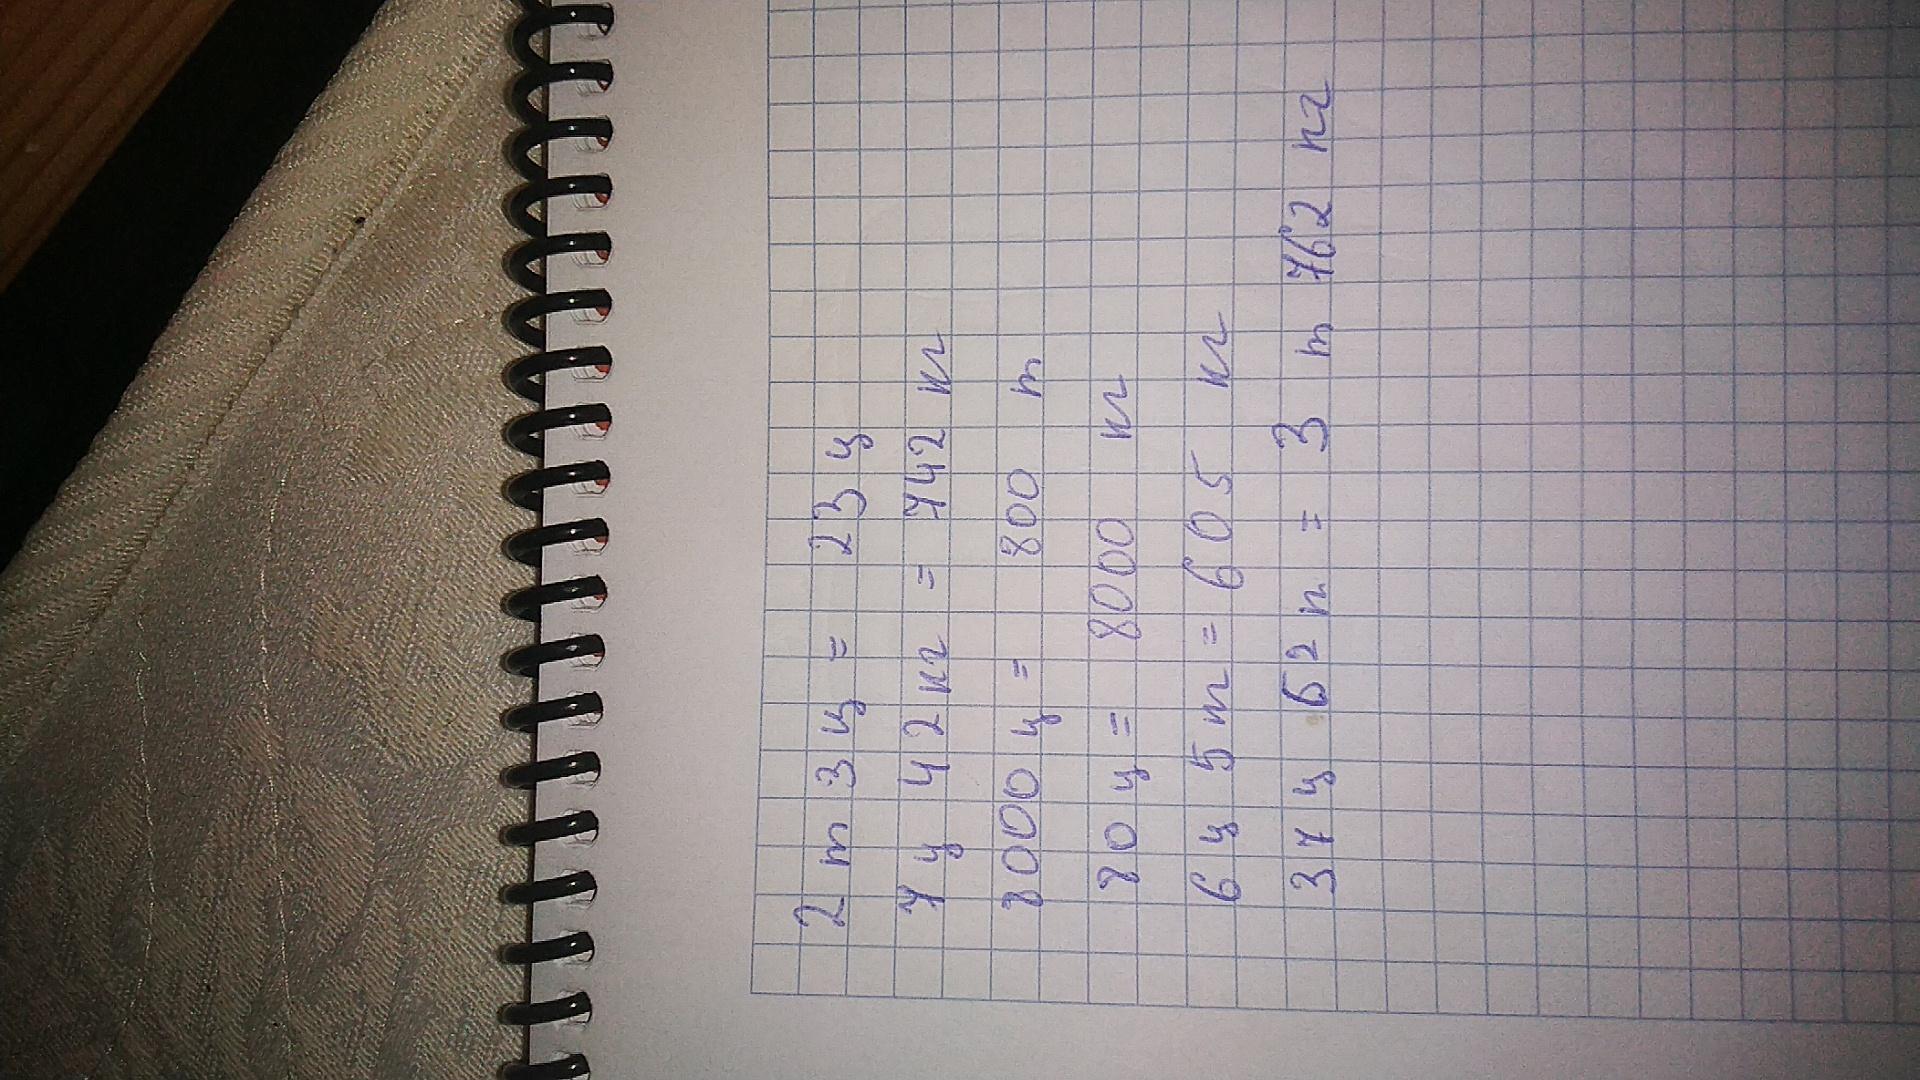 2 т 3 ц = 23 ц
7 ц 42 кг = 742 кг
8000 ц = 800 т
80 ц = 8000 кг
6 ц 5 т = 605 кг
37 ц 62 к = 3 т 762 кг